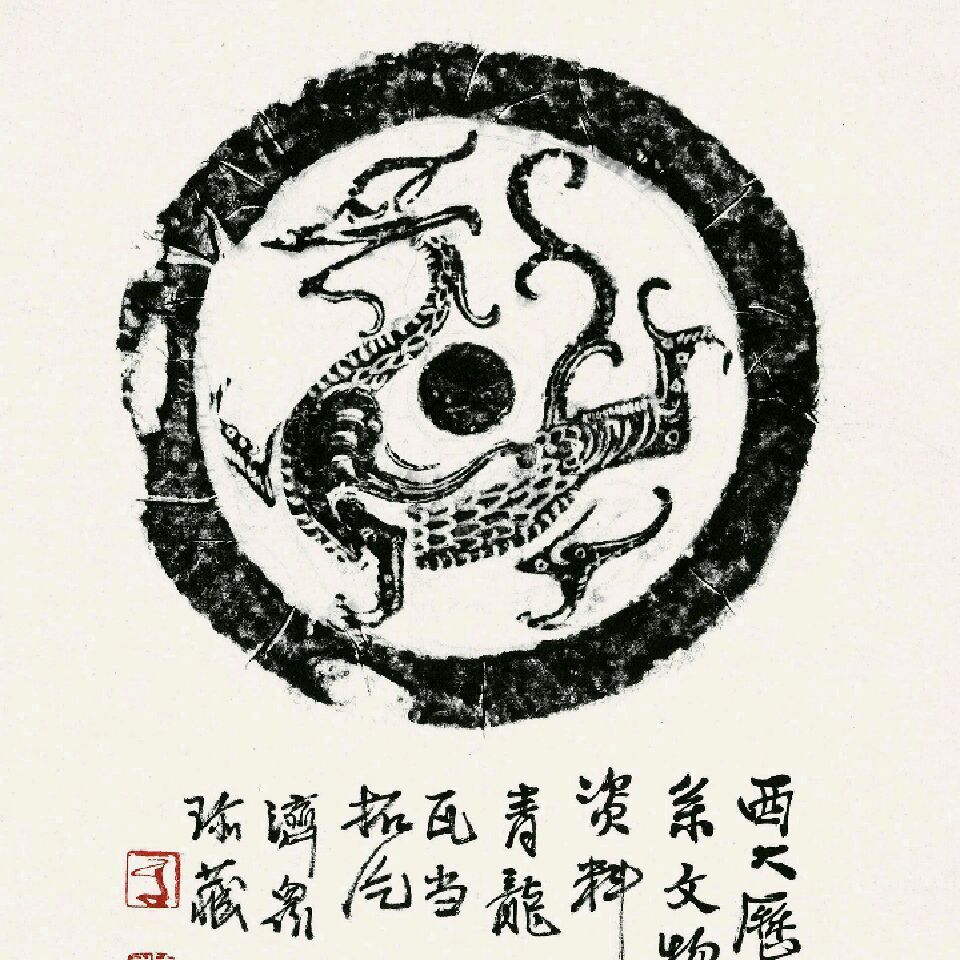 西大歷
系文物
资料
青龍
瓦当
拓片
濟眾
珍藏